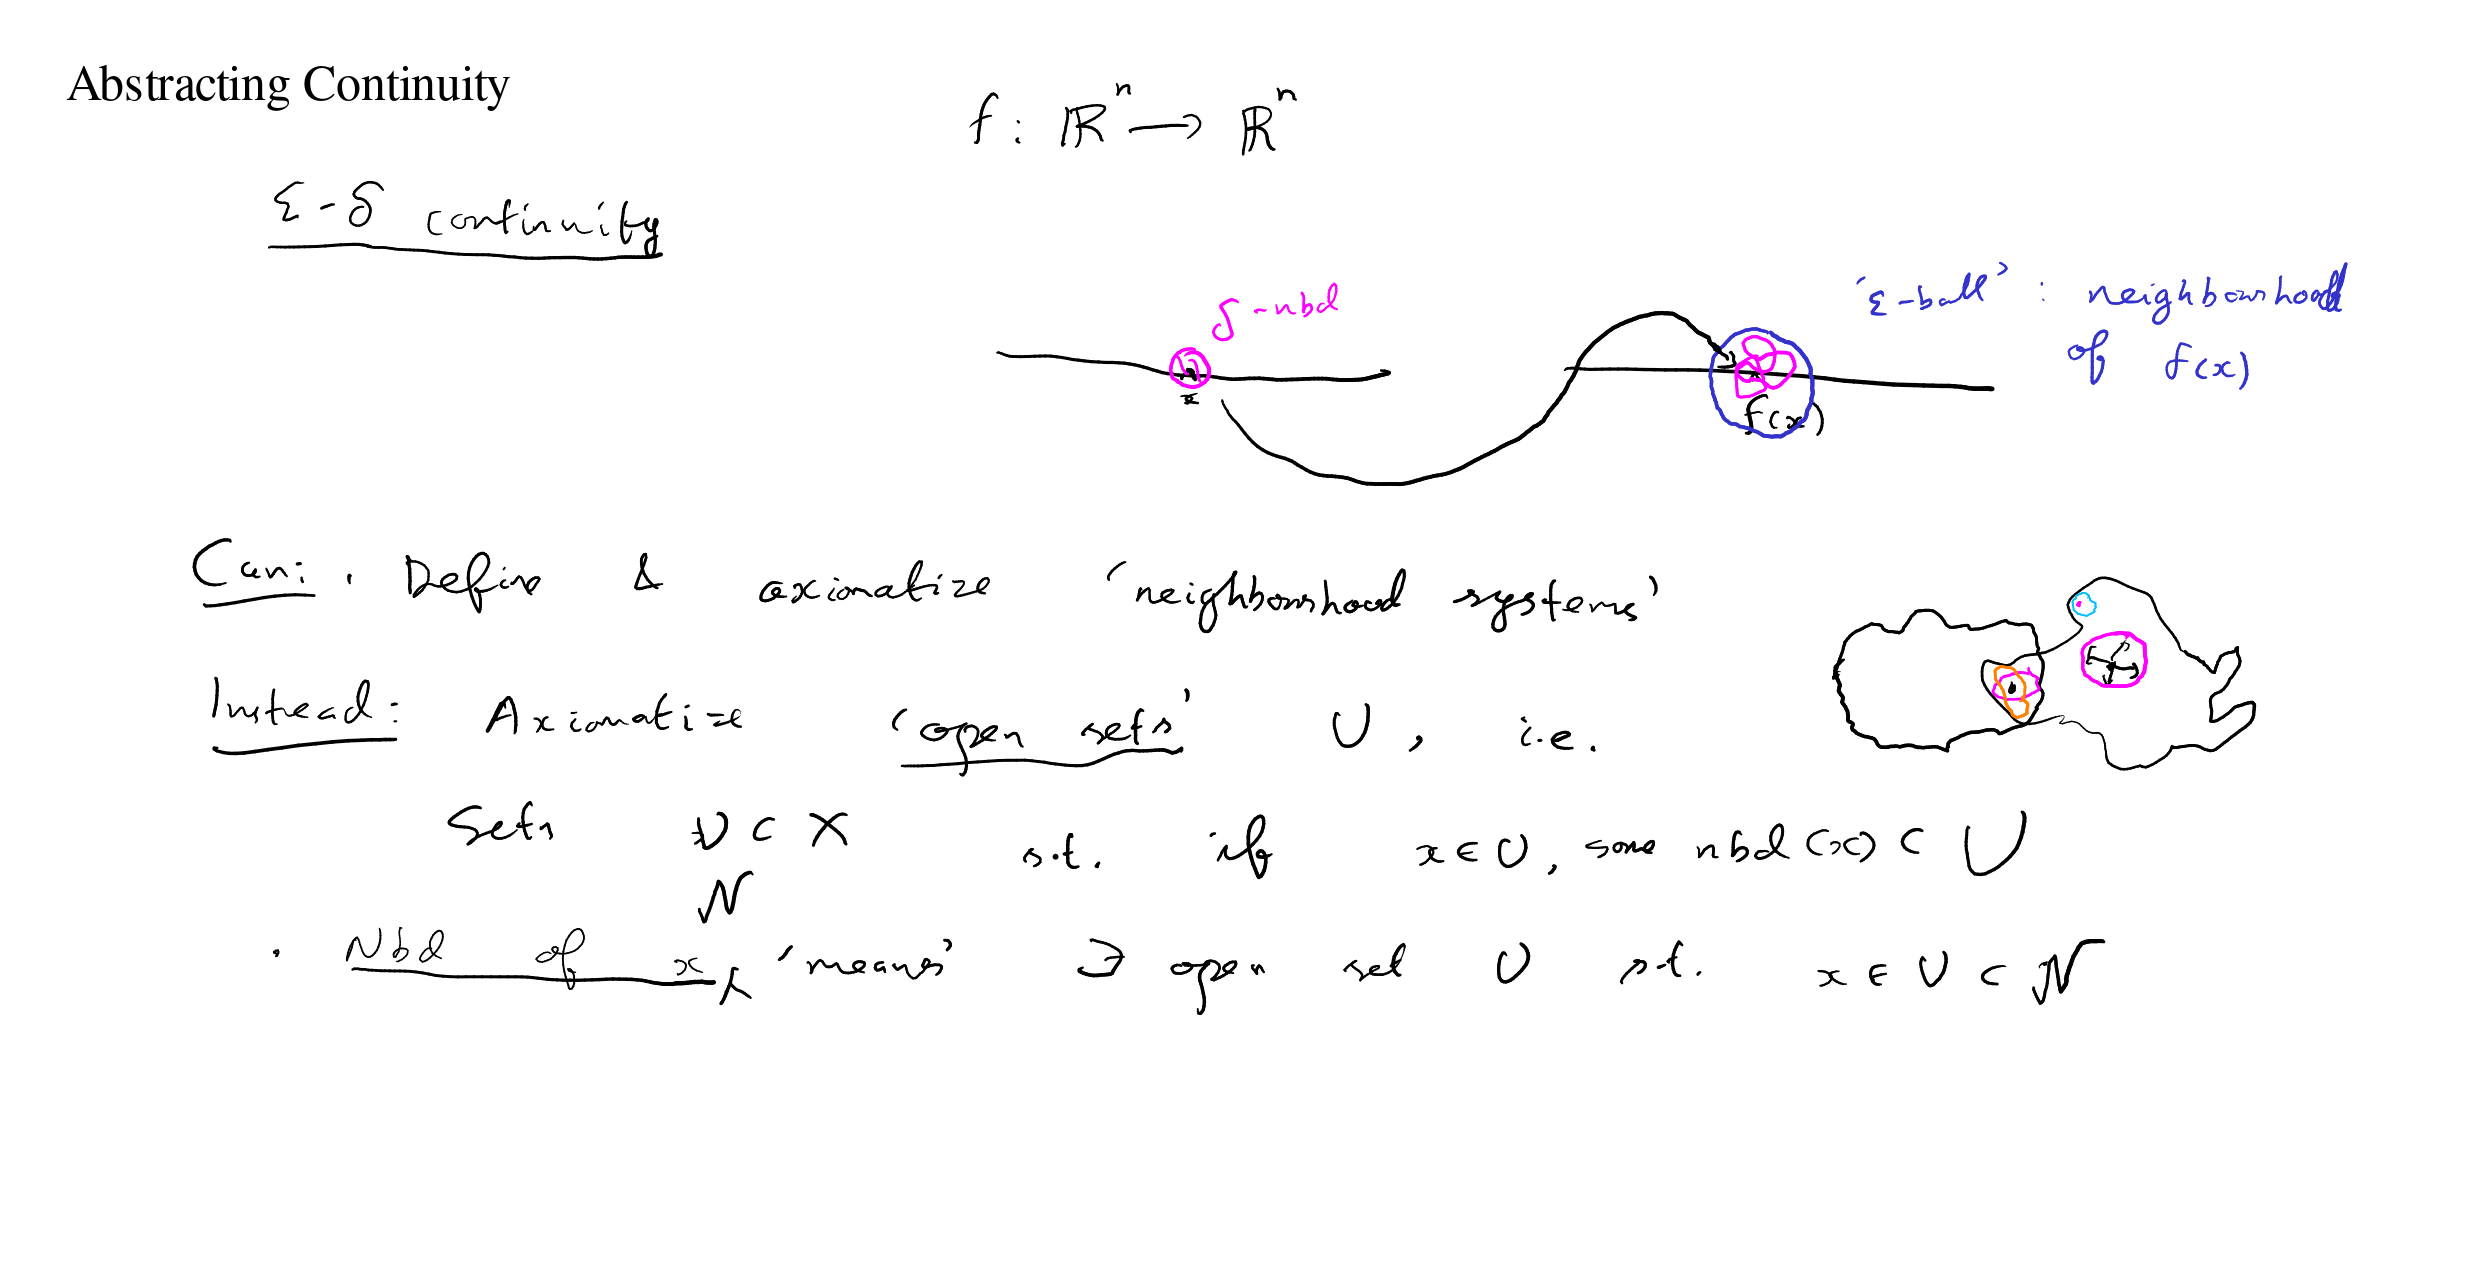 Abstracting Continuity
f: ℝⁿ → ℝⁿ
ε-δ continuity
δ-nbd
'ε-ball' : neighbourhood
of f(x)
x
f(x)
Can: . Define & axiomatize 'neighbourhood systems'
Instead: Axiomatize 'open sets' U, i.e.
Sets U ⊂ X s.t. if x ∈ U, some nbd(x) ⊂ U
N
. Nbd of x 'means' ∃ open set U s.t. x ∈ U ⊂ N